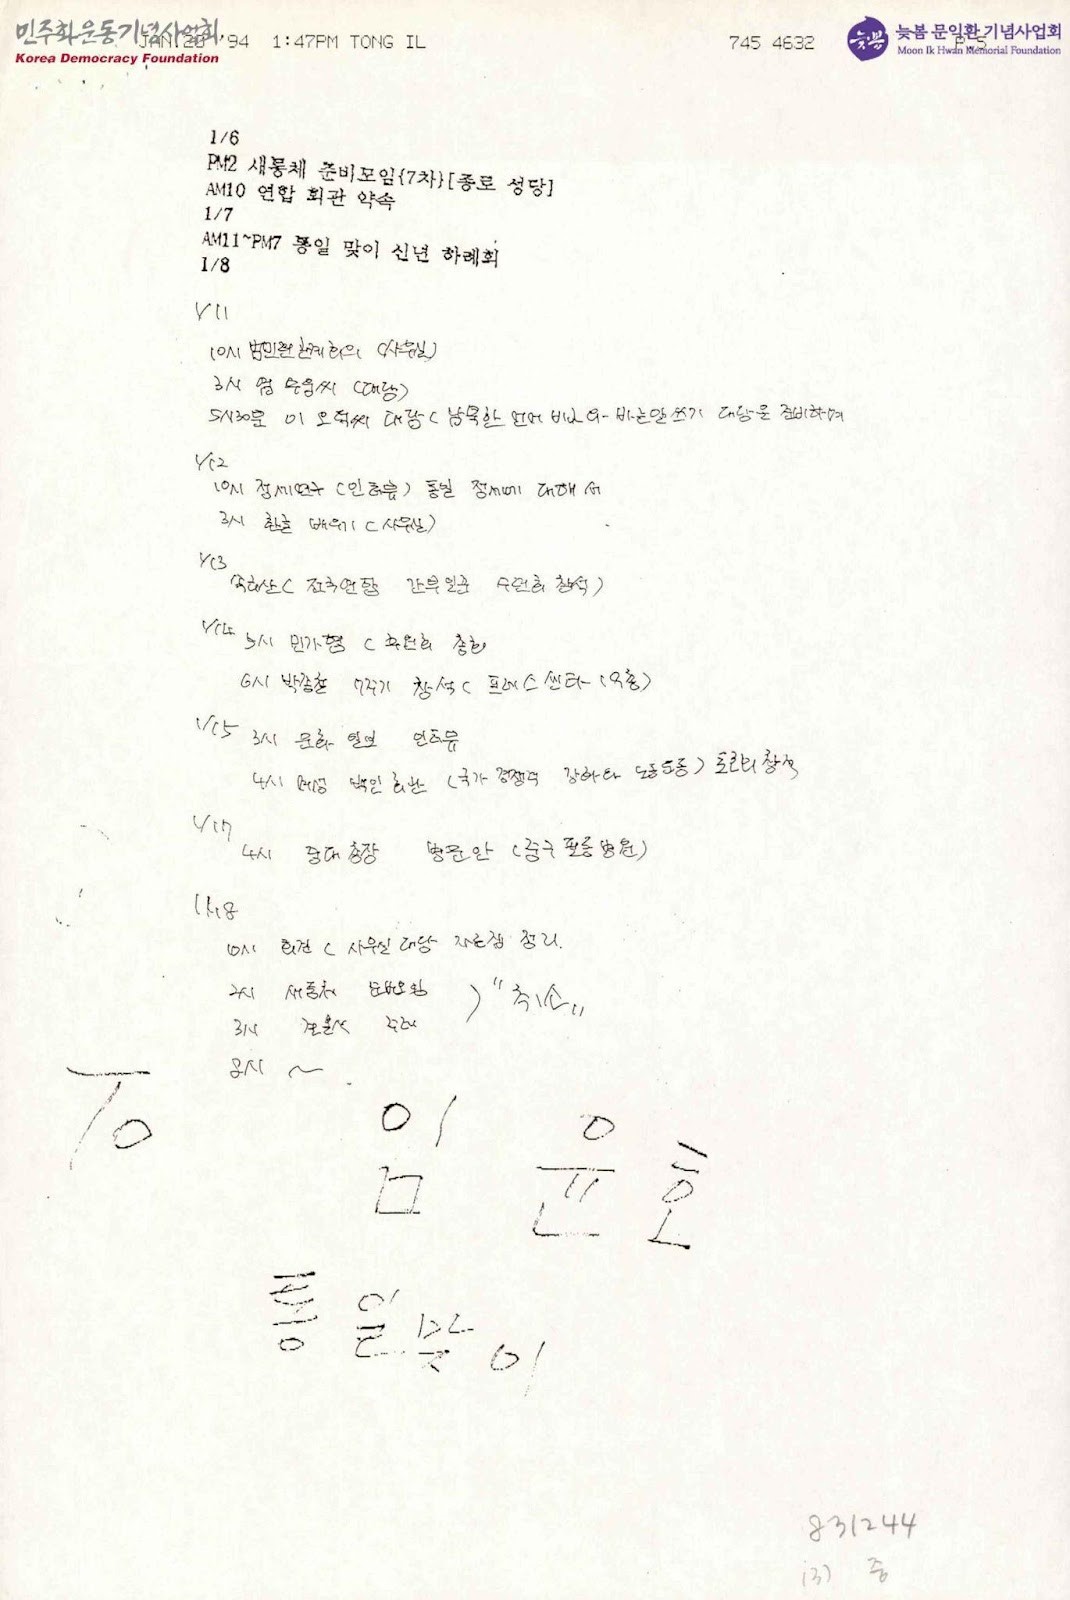 민주화운동기념사업회
Korea Democracy Foundation
JAN 20 '94 1:47PM TONG IL 745 4632 P.5
늦봄 문익환 기념사업회
Moon Ik Hwan Memorial Foundation
1/6
PM2 새통체 준비모임{7차}[종로 성당]
AM10 연합 회관 약속
1/7
AM11~PM7 통일 맞이 신년 하례회
1/8
1/11
10시 범민련 회의 (사무실)
3시 염 씨 (대담)
5시30분 이 오덕씨 대담 ( 남북한 언어 비교와 바른말 쓰기 대담을 준비하며
1/12
10시 정세연구 (인터뷰) 통일 정세에 대해서
3시 한글 배우기 ( 사무실)
1/13
속리산 ( 전국연합 간부일꾼 수련회 참석 )
1/14
시 민가협 ( 후원회 총회
6시 박종철 7주기 참석 ( 프레스 센타 (19층)
1/15 3시 문화 일보 인터뷰
4시 여성 백인 회관 (국가 경쟁력 강화와 노동운동) 토론회 참석
1/17
4시 중대 총장 병문안 (중구 필동병원)
1/18
10시 회견 ( 사무실 대담 자료집 정리.
2시 새통체 준비모임 ) "취소"
3시
8시 ~
To 임 윤 호
통일맞이
831244
(3) 중